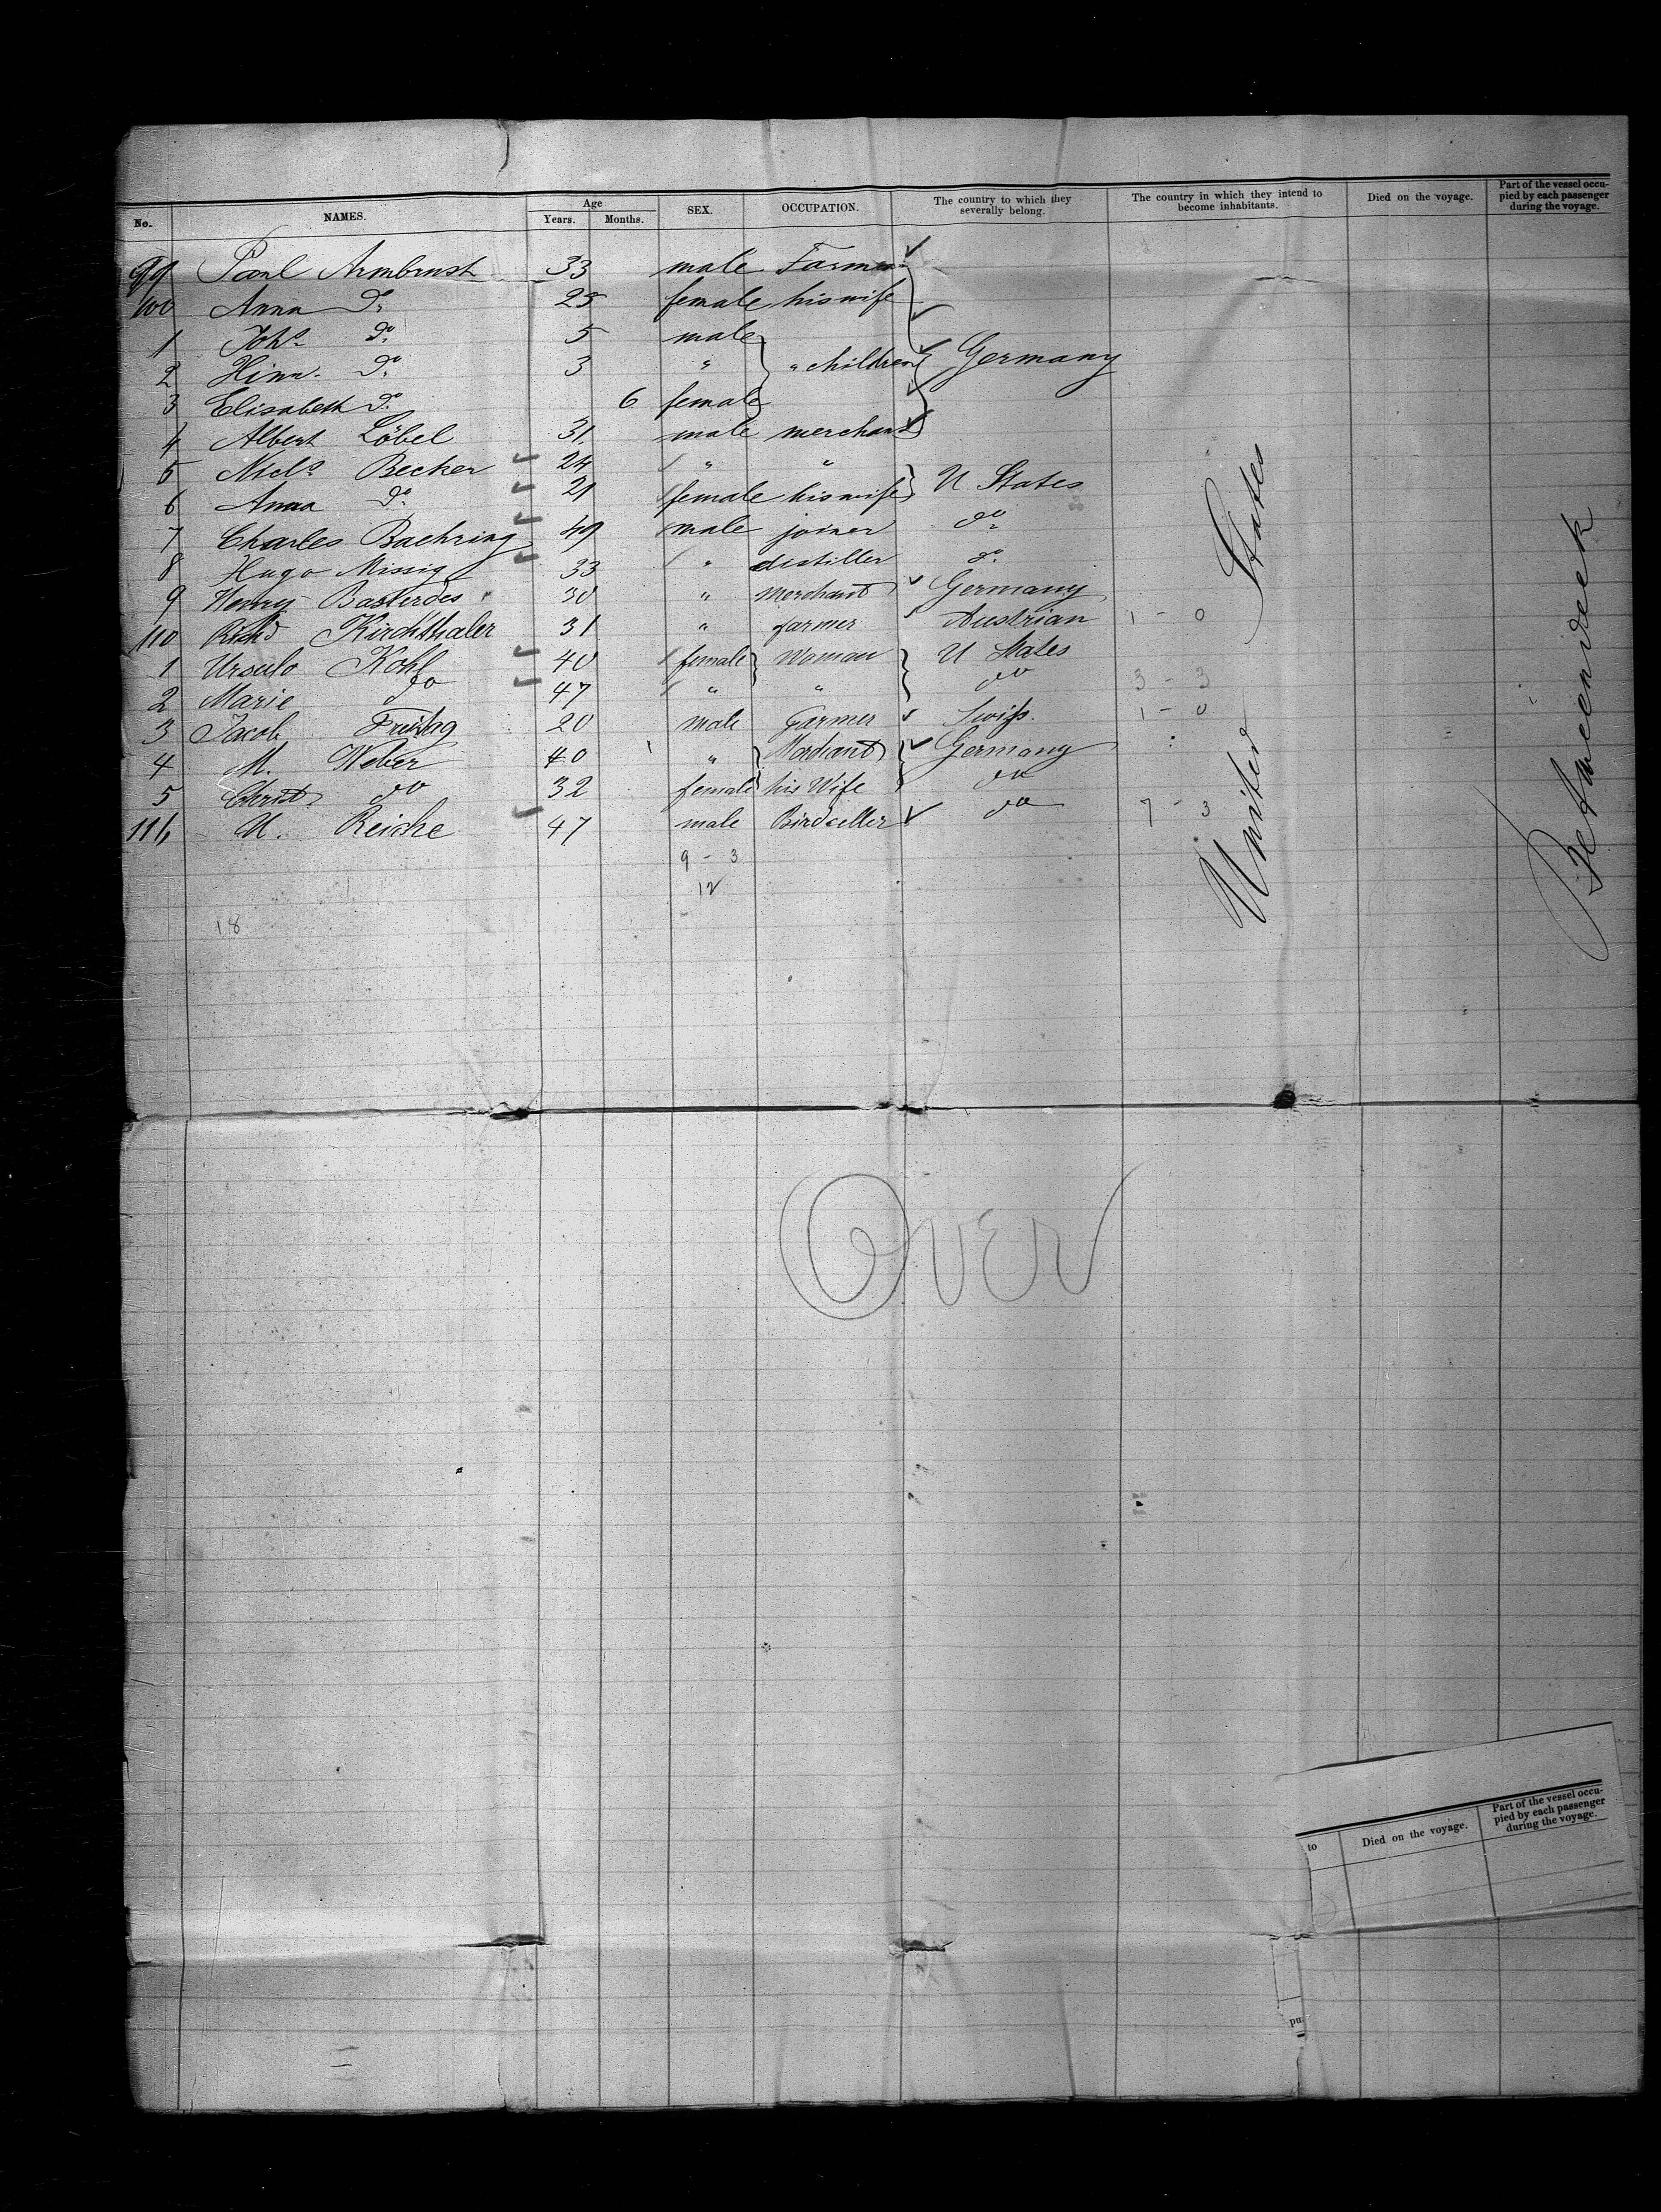 No. NAMES. Age Years. Months. SEX. OCCUPATION. The country to which they severally belong. The country in which they intend to become inhabitants. Died on the voyage. Part of the vessel occupied by each passenger during the voyage.
99 Paul Armbrust 33 male Farmer
100 Anna do 25 female his wife
1 Johs do 5 male
2 Hinr. do 3 " " children Germany
3 Elisabeth do 6 female
4 Albert Löbel 31 male merchant
5 Nicls Becker 24 " "
6 Anna do 21 female his wife U States
7 Charles Baehring 49 male joiner do
8 Hugo Missig 33 " distiller do
9 Henry Basterdes 30 " Merchant Germany
110 Richd Kirchthaler 31 " farmer Austrian 1 - 0
1 Ursulo Kohl 40 female Woman U States
2 Marie do 47 " " do 3 - 3
3 Jacob Freitag 20 male Farmer Swiss. 1 - 0
4 M. Weber 40 " Merchant Germany
5 Christ do 32 female his Wife do
116 U. Reiche 47 male Birdseller do 7 - 3
United States
Betweendeck
9 - 3
12
18
Over
to Died on the voyage. Part of the vessel occupied by each passenger during the voyage.